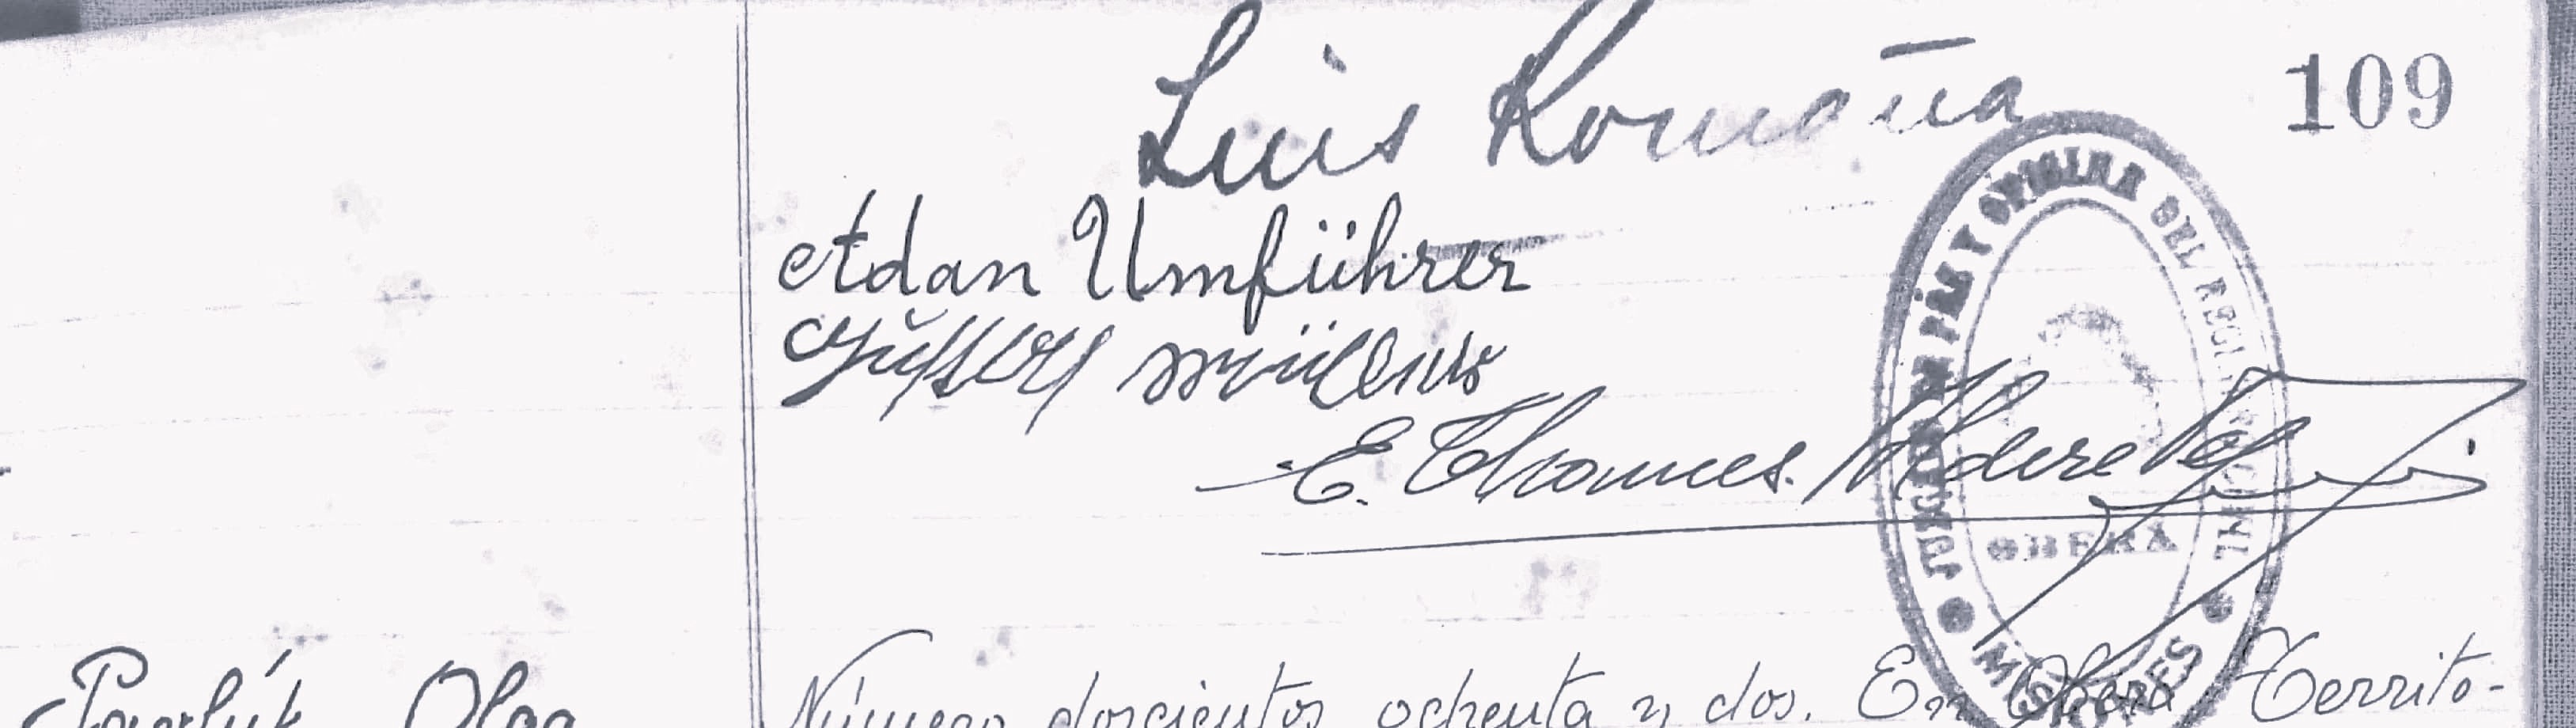 109
Luis Romaña
Adan Umführer
Gustav Müllens
E. Thomes.
JUZGADO DE PAZ Y OFICINA DEL REGISTRO CIVIL
OBERÁ
MISIONES
Pawluk Olga
Número doscientos ochenta y dos. En Oberá Territo-